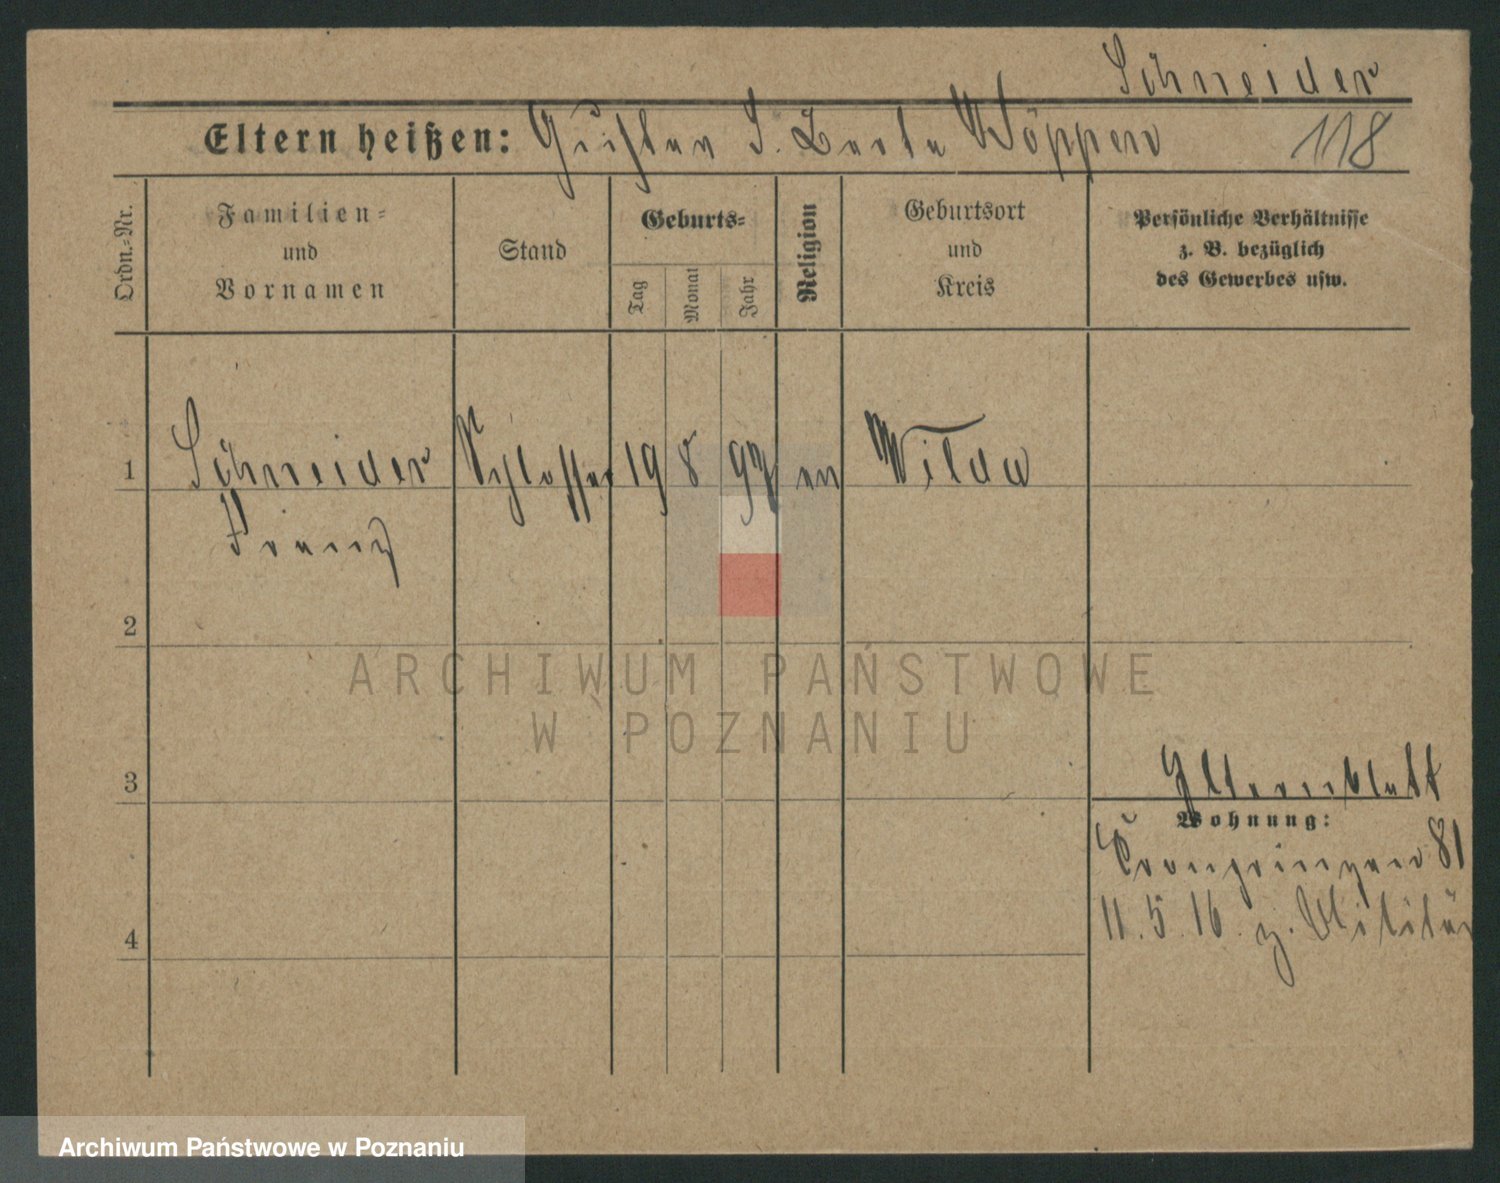 Schneider
Eltern heißen: Gustav J. Berta Wöppen 118
Ordn.-Nr.
Familien-
und
Vornamen
Stand
Geburts-
Tag
Monat
Jahr
Religion
Geburtsort
und
Kreis
Persönliche Verhältnisse
z. B. bezüglich
des Gewerbes usw.
1 Schneider Schlosser 19 8 97 ev Wilda
Franz
2
ARCHIWUM PAŃSTWOWE
W POZNANIU
3
Elternblatt
Wohnung:
Kronprinzen 81
11.5.16. z. Militär
4
Archiwum Państwowe w Poznaniu